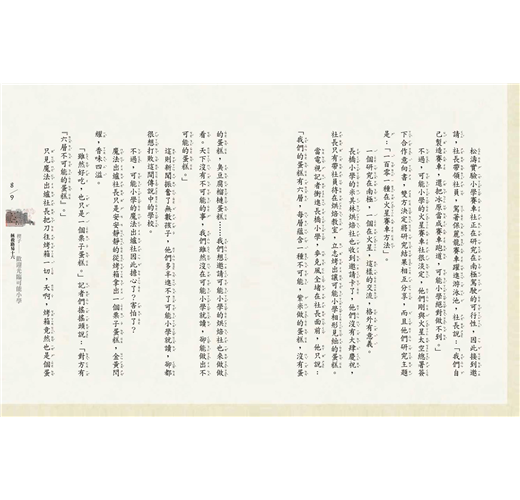 松濤實驗小學賽車社正在研究在南極駕駛的可行性，因此接到邀
請，社長帶領社員，駕著保麗龍賽車躍進游泳池，社長說：「我們自
己製造賽車，還把冰原當成賽車跑道，可能小學絕對做不到。」
不過，可能小學的火星賽車社很淡定，他們剛與火星太空總署簽
下合作意向書，雙方決定將研究結果相互分享，而且他們研究主題
是：「一百零一種在火星賽車方法」。
一個研究在南極，一個在火星，這樣的交流，格外有意義。
長橋小學的米其林烘焙社也收到邀請卡了，他們沒有大肆慶祝，
社長只有帶著社員待在烘焙教室，立志烤出讓可能小學相形見絀的蛋糕。
當電視記者衝進長橋小學，麥克風全堵在社長面前，他只說：
「我們的蛋糕有六層，每層蘊含一種不可能，紫米做的蛋糕，沒有蛋
的蛋糕，臭豆腐榴槤蛋糕……我們想邀請可能小學的烘焙社也來做做
看。天下沒有不可能的事，我們雖然沒在可能小學就讀，卻能做出不
可能的蛋糕。」
這則新聞振奮了無數孩子，他們多半進不了可能小學就讀，卻都
很想打敗這間傳說中的學校。
不過，可能小學的魔法出爐社因此擔心了？害怕了？
魔法出爐社長只是安安靜靜的從烤箱拿出一個栗子蛋糕，金黃閃
耀，香味四溢。
「雖然好吃，也只是一個栗子蛋糕。」記者們搖搖頭說：「對方有
「六層不可能的蛋糕。」
只見魔法出爐社長把刀往烤箱一切，天啊，烤箱竟然也是個蛋
8／9
歡迎光臨可能小學